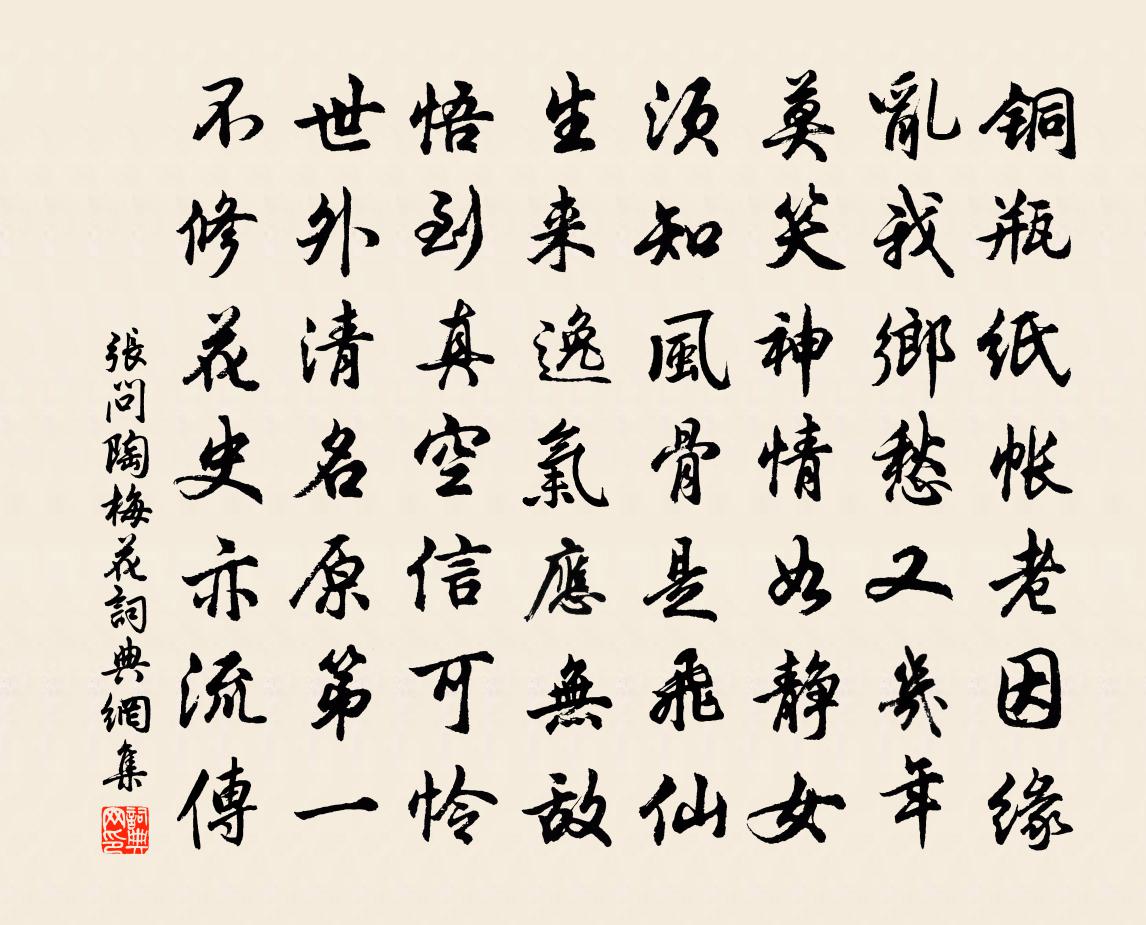 銅瓶紙帳老因緣
亂我鄉愁又幾年
莫笑神情如靜女
須知風骨是飛仙
生來逸氣應無敵
悟到真空信可憐
世外清名原第一
不修花史亦流傳
張問陶梅花詞典網集
詞典網印